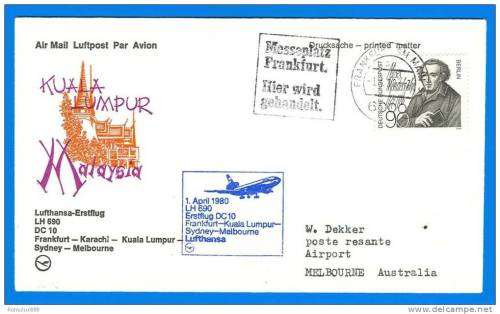 Air Mail Luftpost Par Avion
KUALA
LUMPUR
Malaysia
Lufthansa-Erstflug
LH 690
DC 10
Frankfurt – Karachi – Kuala Lumpur –
Sydney – Melbourne
Messeplatz
Frankfurt.
Hier wird
gehandelt.
Drucksache – printed matter
FRANKFURT AM MAIN
BERLIN
DEUTSCHE BUNDESPOST
90
1. April 1980
LH 690
Erstflug DC10
Frankfurt–Kuala Lumpur–
Sydney–Melbourne
Lufthansa
W. Dekker
poste resante
Airport
MELBOURNE Australia